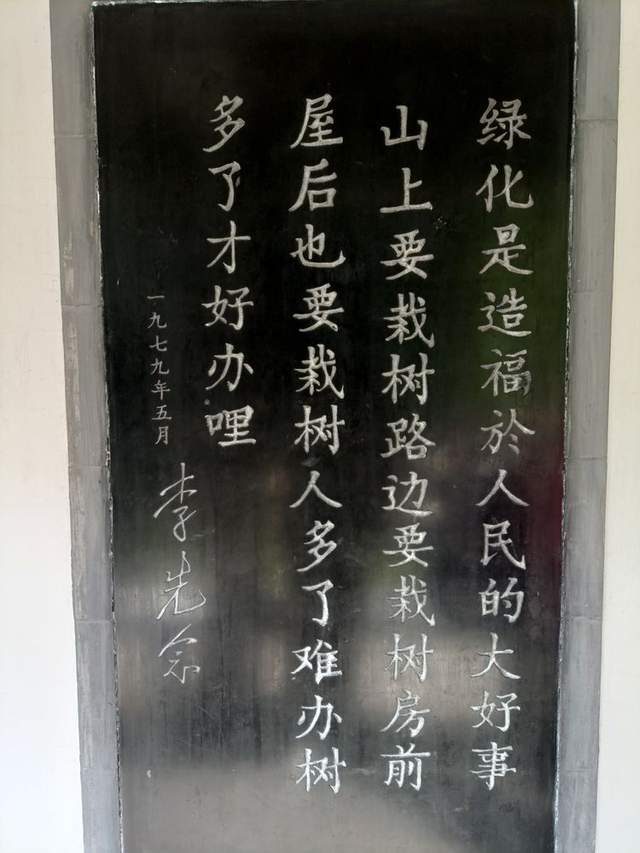 绿化是造福於人民的大好事
山上要栽树路边要栽树房前
屋后也要栽树人多了难办树
多了才好办哩
一九七九年五月
李先念